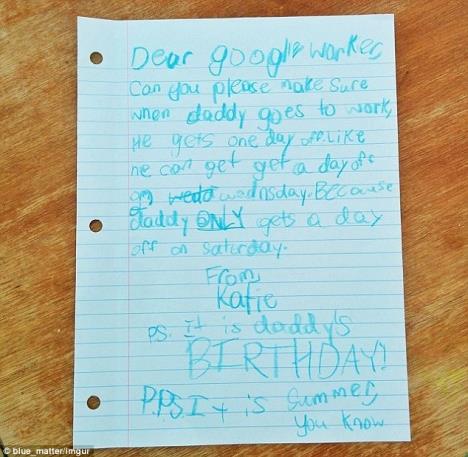 Dear google worker,
Can you please make sure
when daddy goes to work,
He gets one day off. Like
he can get get a day off
on wedd wednsday. Because
daddy ONLY gets a day
off on Saturday.
From,
Katie
PS. It is daddy's
BIRTHDAY!
P.P.S It is Summer,
you know
© blue_matter/imgur